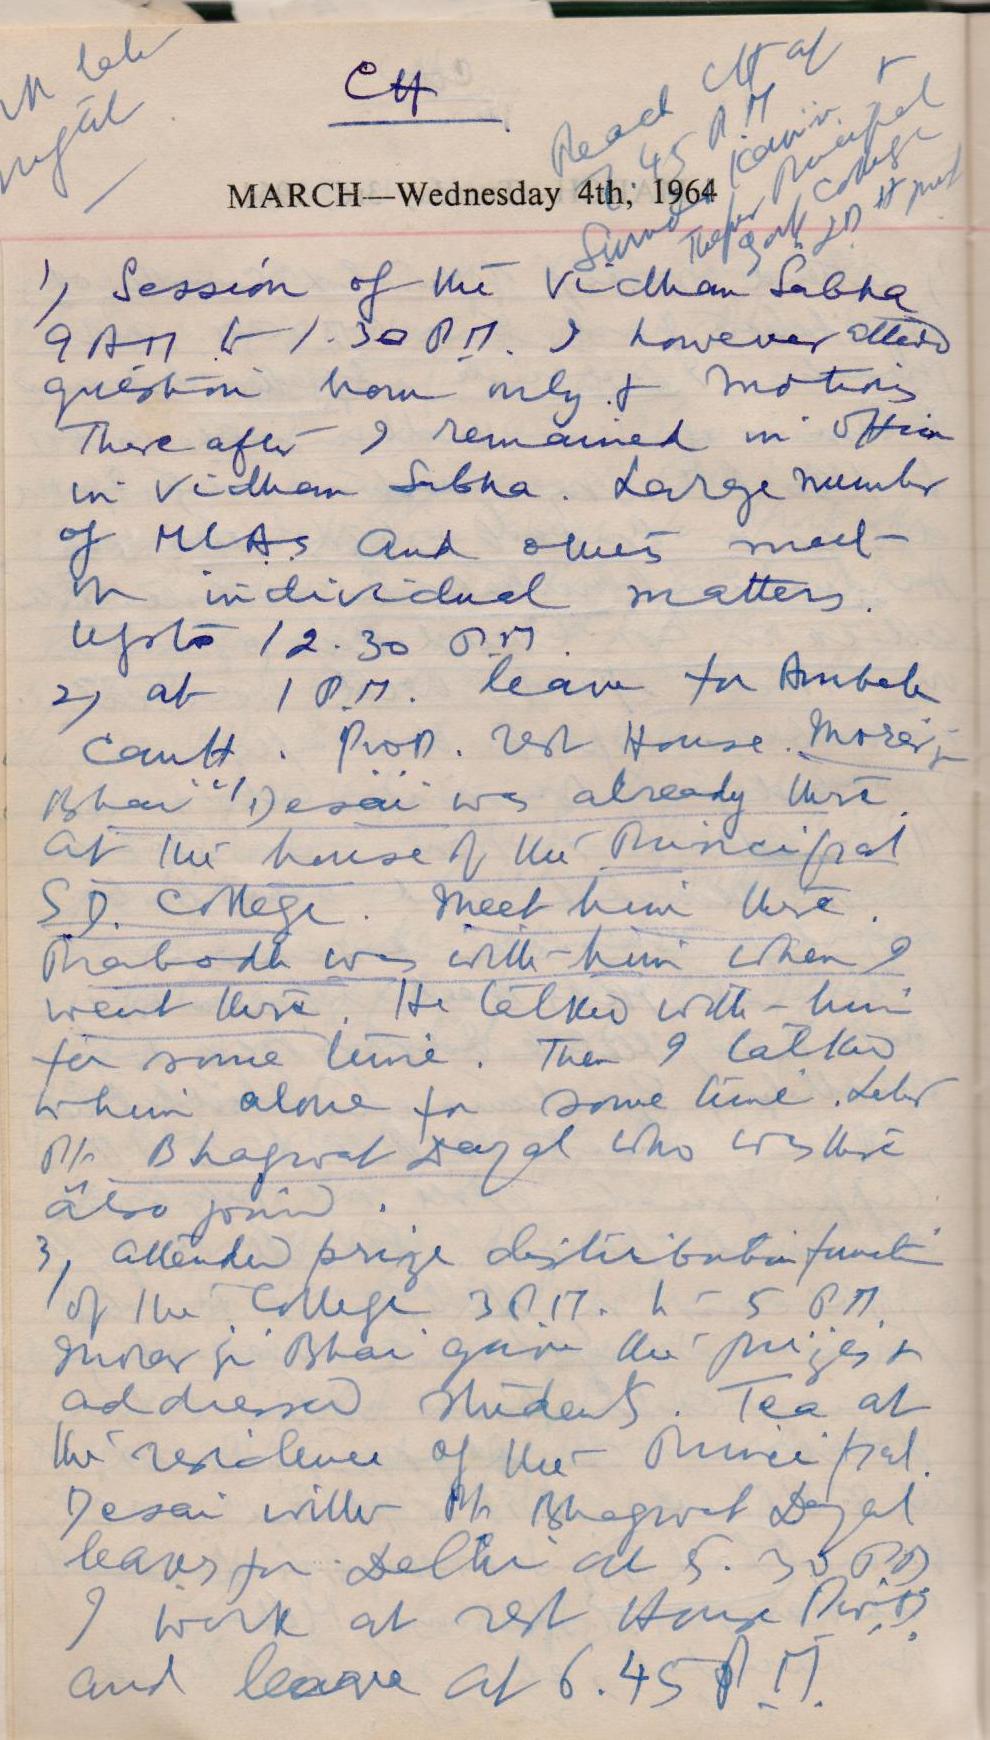 CH
MARCH—Wednesday 4th, 1964
Reach CH at
7.45 P.M
&
Principal
College
1) Session of the Vidhan Sabha
9 AM to 1.30 P.M. I however attend
question hour only & motions
There after I remained in office
in Vidhan Sabha. Large number
of MLAs and others meet
in individual matters.
upto 12.30 P.M.
2) at 1 P.M. leave for Ambala
Cantt. P.W.D. rest House. Morarji
Bhai Desai was already there
at the house of the Principal
S.D. College. Meet him there.
Prabodh was with him when I
went there. He talked with him
for some time. Then I talked
w him alone for some time. Later
Pt. Bhagwat Dayal who was there
also joined.
3) attended prize distribution function
of the College 3 P.M. to 5 P.M.
Morarji Bhai gave the prizes &
addressed students. Tea at
the residence of the Principal.
Desai with Pt. Bhagwat Dayal
leaves for Delhi at 5.30 P.M
I work at rest House P.W.D.
and leave at 6.45 P.M.